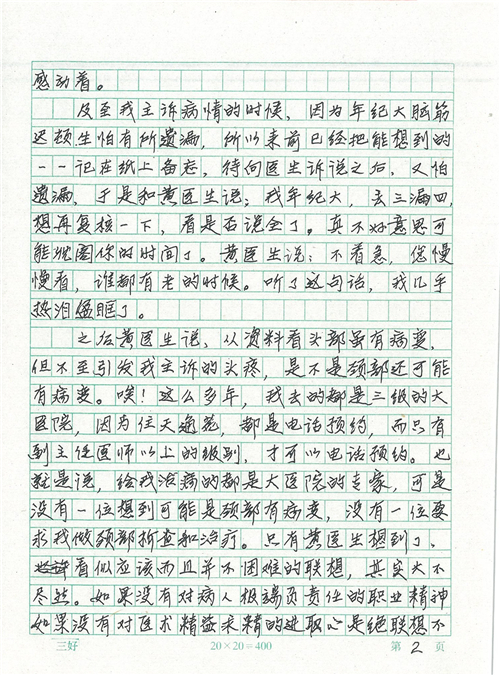 感动着。
及至我主诉病情的时候，因为年纪大脑筋
迟顿生怕有所遗漏，所以来前已经把能想到的
一一记在纸上备忘，待向医生诉说之后，又怕
遗漏，于是和黄医生说：我年纪大，丢三漏四，
想再复核一下，看是否说全了。真不好意思可
能耽误你的时间了。黄医生说：不着急，您慢
慢看，谁都有老的时候。听了这句话，我几乎
热泪盈眶了。
之后黄医生说，从资料看头部虽有病变，
但不至引发我主诉的头疼，是不是颈部还可能
有病变。唉！这么多年，我去的都是三级的大
医院，因为住天通苑，都是电话预约，而只有
到主任医师以上的级别，才可以电话预约。也
就是说，给我治病的都是大医院的专家，可是
没有一位想到可能是颈部有病变，没有一位要
求我做颈部检查和治疗。只有黄医生想到了、
看似应该而且并不困难的联想，其实大不
尽然。如果没有对病人极端负责任的职业精神
如果没有对医术精益求精的进取心是绝联想不
三好 20×20=400 第 2 页